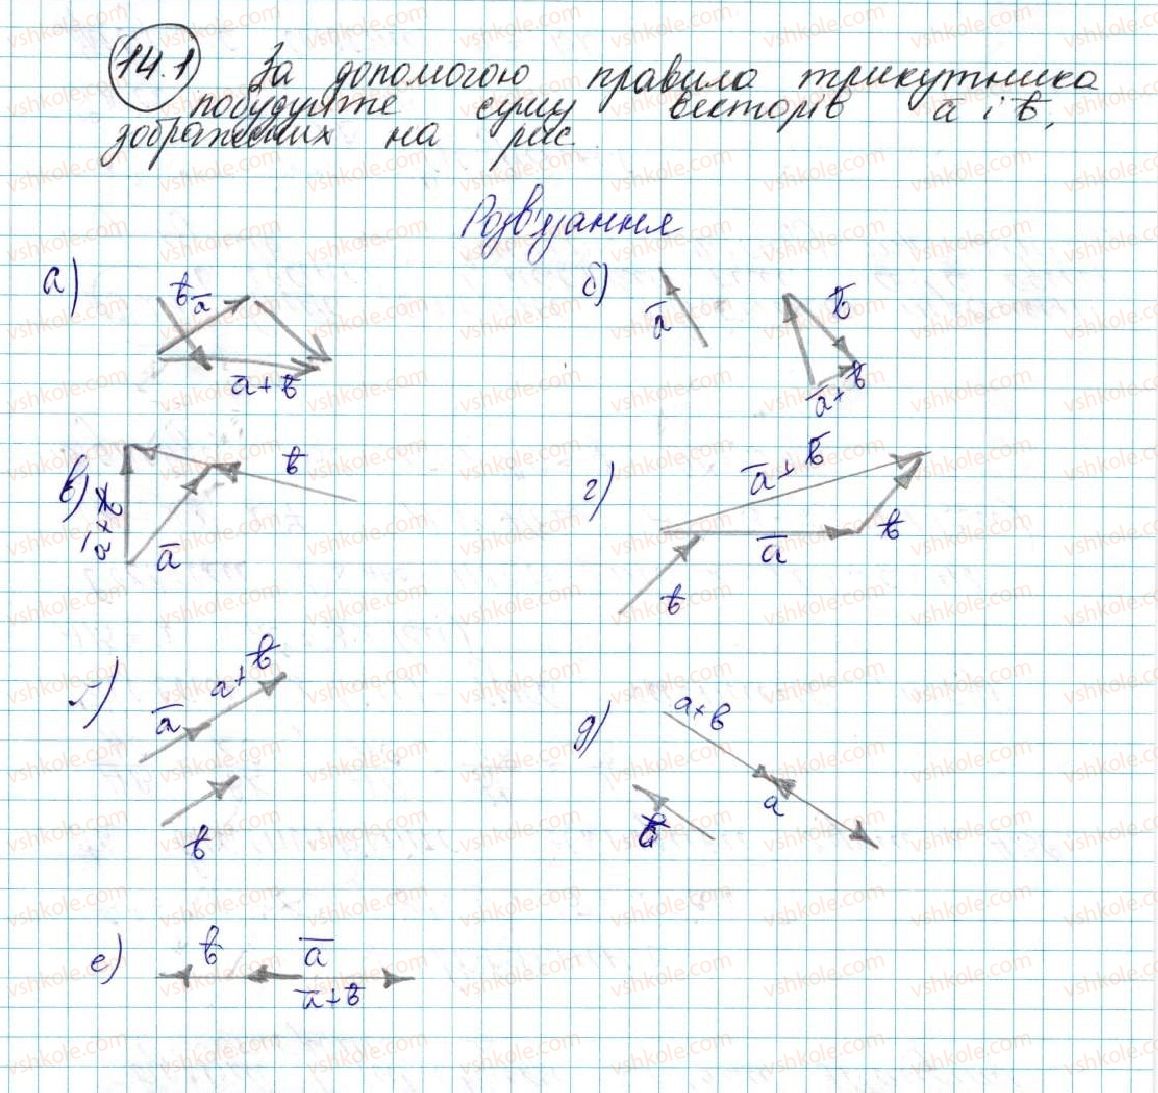 14.1 За допомогою правила трикутника
побудуйте суму векторів a̅ і b̅,
зображених на рис.
Розв'язання
а) b̅ a̅ a̅+b̅
б) a̅ b̅ a̅+b̅
в) a̅+b̅ a̅ b̅
г) a̅+b̅ a̅ b̅ b̅
ґ) a̅ a+b̅ b̅
д) a+b a b̅
е) b̅ a̅ a̅+b̅